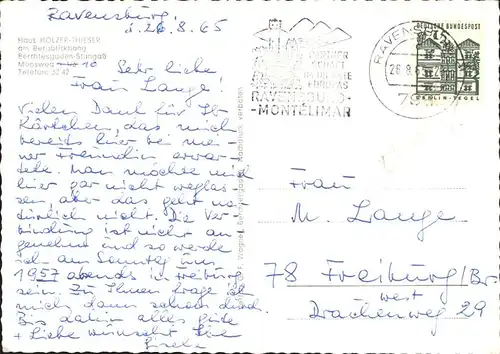 Ravensburg,
d. 26.8.65
Haus HOLZER-THIESER
am Berzallkhang
Berchtesgaden-Stangaß
Moosweg 10
Telefon 32 42
Sehr liebe
Frau Lange!
Vielen Dank für Ihr
Kärtchen, das mich
bereits hier bei mei-
ner Freundin erwar-
tete. Man möchte mich
hier gar nicht weglas-
sen, aber das geht na-
türlich nicht. Die Ver-
bindung ist nicht an-
genehm und so werde
ich am Sonntag um
19 57 abends in Freiburg
sein. Zu Ihnen frage ich
mich dann schon durch.
Bis dahin alles gute
+ Liebe wünscht Ihre
Gisela
RAVENSBURG
-MONTÉLIMAR
RAVENSBURG
26.8.65
DEUTSCHE BUNDESPOST
BERLIN-TEGEL
Frau
M. Lange
78 Freiburg/Br.
west
Drachenweg 29